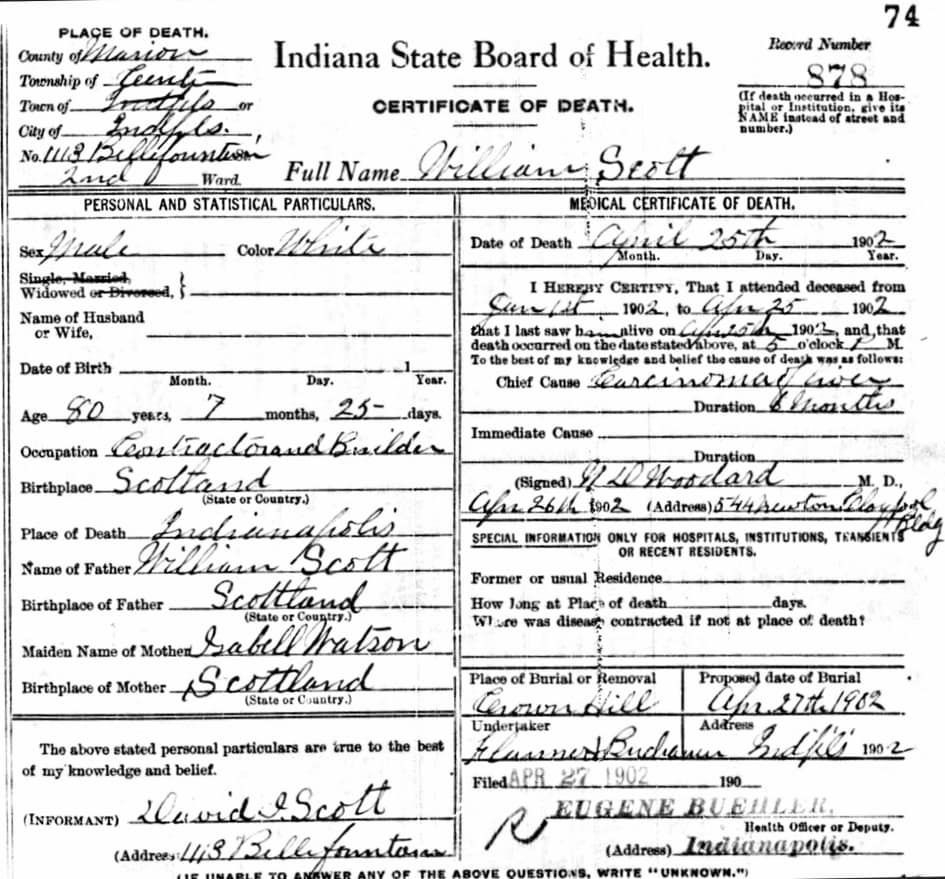 74
PLACE OF DEATH.
County of Marion
Township of Center
Town of Indpls or
City of Indpls.,
No. 1113 Bellefountain St
2nd Ward.
Indiana State Board of Health.
CERTIFICATE OF DEATH.
Record Number
878
(If death occurred in a Hos-
pital or Institution, give its
NAME instead of street and
number.)
Full Name William Scott
PERSONAL AND STATISTICAL PARTICULARS.
Sex Male Color White
Single, Married,
Widowed or Divorced, }
Name of Husband
or Wife,
Date of Birth 1
Month. Day. Year.
Age 80 years, 7 months, 25 days.
Occupation Contractor and Builder
Birthplace Scotland
(State or Country.)
Place of Death Indianapolis
Name of Father William Scott
Birthplace of Father Scottland
(State or Country.)
Maiden Name of Mother Isabell Watson
Birthplace of Mother Scottland
(State or Country.)
The above stated personal particulars are true to the best
of my knowledge and belief.
(INFORMANT) David I. Scott
(Address) 1113 Bellefountain
MEDICAL CERTIFICATE OF DEATH.
Date of Death April 25th 1902
Month. Day. Year.
I HEREBY CERTIFY, That I attended deceased from
Jan 1st 1902, to Apr 25 1902
that I last saw him alive on Apr 25th 1902, and that
death occurred on the date stated above, at 5 o'clock P M.
To the best of my knowledge and belief the cause of death was as follows:
Chief Cause Carcinoma of liver
Duration 6 Months
Immediate Cause
Duration
(Signed) N D Woodard M. D.,
Apr 26th 1902 (Address) 544 Newton Claypool
Bldg
SPECIAL INFORMATION ONLY FOR HOSPITALS, INSTITUTIONS, TRANSIENTS
OR RECENT RESIDENTS.
Former or usual Residence
How long at Place of death days.
Where was disease contracted if not at place of death?
Place of Burial or Removal Proposed date of Burial
Crown Hill Apr 27th 1902
Undertaker Address
Flanner & Buchanan Indpls 1902
Filed APR 27 1902 190
EUGENE BUEHLER,
Health Officer or Deputy.
(Address) Indianapolis.
(IF UNABLE TO ANSWER ANY OF THE ABOVE QUESTIONS, WRITE "UNKNOWN.")